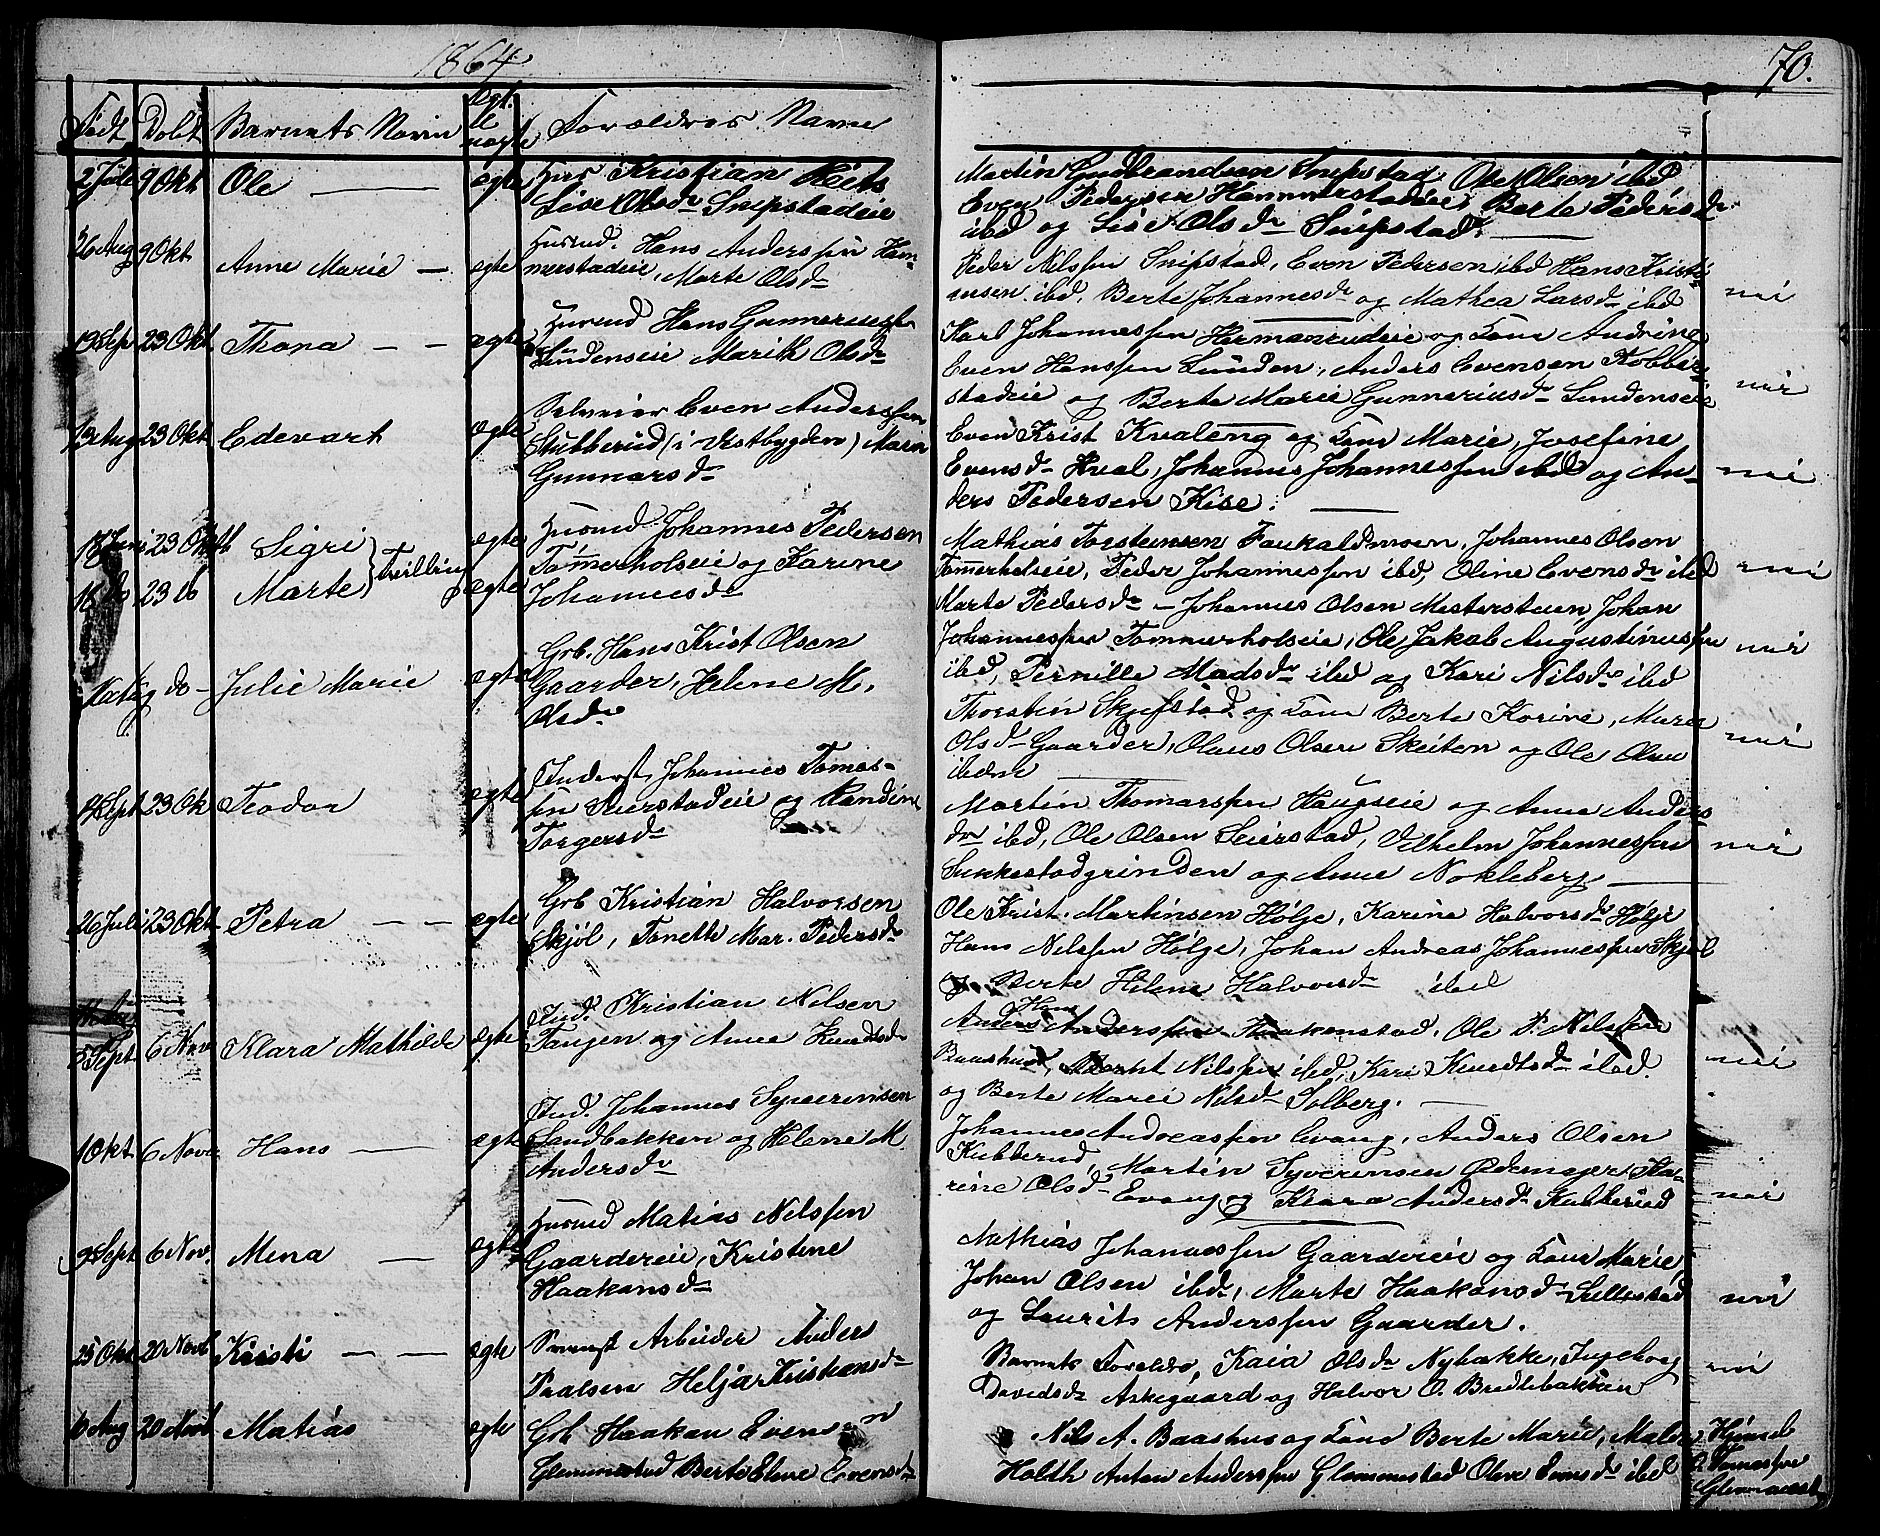 1864
70.
Født Døbt Barnets Navn Ægt. el uægte Foreldres Navne
2 Juli 9 Okt Ole ægte Hus Kristian
Lise Olsdr Snipstadeie
26 Aug 9 Okt Anne Marie ægte Husmd. Hans Anderssen Ham-
merstadeie, Marte Olsdr
13 Sep 23 Okt Thona ægte Husmd Hans Gunnerius
Lundenseie Marith Olsdr
Aug 23 Okt Edevart ægte Selveier Even Anderssen
Stubberud (i Vestbygden) Maren
Gunnarsdr
18 Juni 23 Okt Sigri ægte Husmd Johannes Pedersen
Tvilling
Tømmerholseie og Karine
18 do 23 do Marte ægte Johannesdr
do Julie Marie ægte Grb. Hans Krist Olsen
Gaarder, Helene M.
Olsdr
Sept 23 Ok Teodor ægte Inderst, Johannes Tomas-
sen Seierstadeie og Randine
Torgersdr
26 Juli 23 Okt Petra ægte Grb Kristian Halvorsen
Skjøl, Tonette Mar. Pedersdr
5 Sept 6 Nov Klara Mathilde ægte Ind. Kristian Nilsen
Tangen og Anne Knudtsdr
1 Okt 6 Nov Hans ægte Ind. Johannes Syverinsen
Sandbakken og Helene M.
Andersdr
Sept 6 Nov. Mena ægte Husmd Matias Nilssen
Gaardereie, Kristine
Haakonsdr
25 Okt 20 Novb Kristi ægte Svensk Arbeider Anders
Paalsen Helja Kristiansdr
6 Aug 20 Novb Matias ægte Grb Haakan Evensen
Glemmestad Berte Eline Evensdr
Martin Gudbrandsen Snipstad Ole Olsen ibd
Even Pedersen Hammerstadeie, Berte Pedersdr
ibd og Lise Olsdr Snipstad.
Peder Nilssen Snipstad, Even Pedersen ibd Hans Kristi-
ansen ibd, Berte Johannesdr og Mathea Larsdr ibd nei
Karl Johannessen Hermanrudeie og Kone Andrine
Even Hanssen Lunden, Anders Evensen Kobber-
stadeie og Berte Marie Gunneriusdr Lundenseie nei
Even Krist Kvaleng og Kone Marie, Josefine
Evensdr Hval, Johannes Johannessen ibd og An- nei
ders Pedersen Kise.
Mathias Torstensen Faukaldmoen, Johannes Olsen
Tømmerholseie, Peder Johannessen ibd, Oline Evensdr ibd nei
Marte Pedersdr – Johannes Olsen Mesterstuen, Johan
Johannessen Tømmerholseie, Ole Jakob Augustinussen nei
ibd, Pernille Madsdr ibd og Kari Nilsdr ibd
Thorstin Skjefstad og Kone Berte Korine, Maren
Olsdr Gaarder, Olaus Olsen Skeiten og Ole Olsen nei
ibdem
Martin Thomassen Haugseie og Anne Anders-
dr ibd, Ole Olsen Seierstad, Vilhelm Johannessen nei
Sukkestadgrinden og Anne Nokleberg
Ole Krist. Martinsen Hølje, Karine Halvorsdr Hølje
Hans Nilssen Hølge, Johan Andreas Johannessen Skjøl
og Berte Helene Halvorsdr ibd
Hans
Anders Anderssen Haakenstad, Ole P. Nilssen
Baashus, Bernt Nilssen ibd, Kari Knudtsdr ibd. nei
og Berte Marie Nilsdr Solberg.
Johannes Andreassen Evang, Anders Olsen
Kubberud, Martin Syverinsen Ødemager, Ka-
rine Olsdr Evang og Klara Andersdr Kubberud nei
Mathias Johannessen Gaardereie og Kone Marie,
Johan Olsen ibd, Marte Haakonsdr Sillestad nei
og Laurits Anderssen Gaarder.
Barnets Foreldre, Kaia Olsdr Nybakke, Ingeborg nei
Davidsdr Askegaard og Halvor O. Bredlebakken
Nils A. Baashus og Kone Berte Marie, Malin Himsel
Holth Anton Anderssen Glemmestad Oleve Evensdr ibd O. Tomassen
Glemmestad